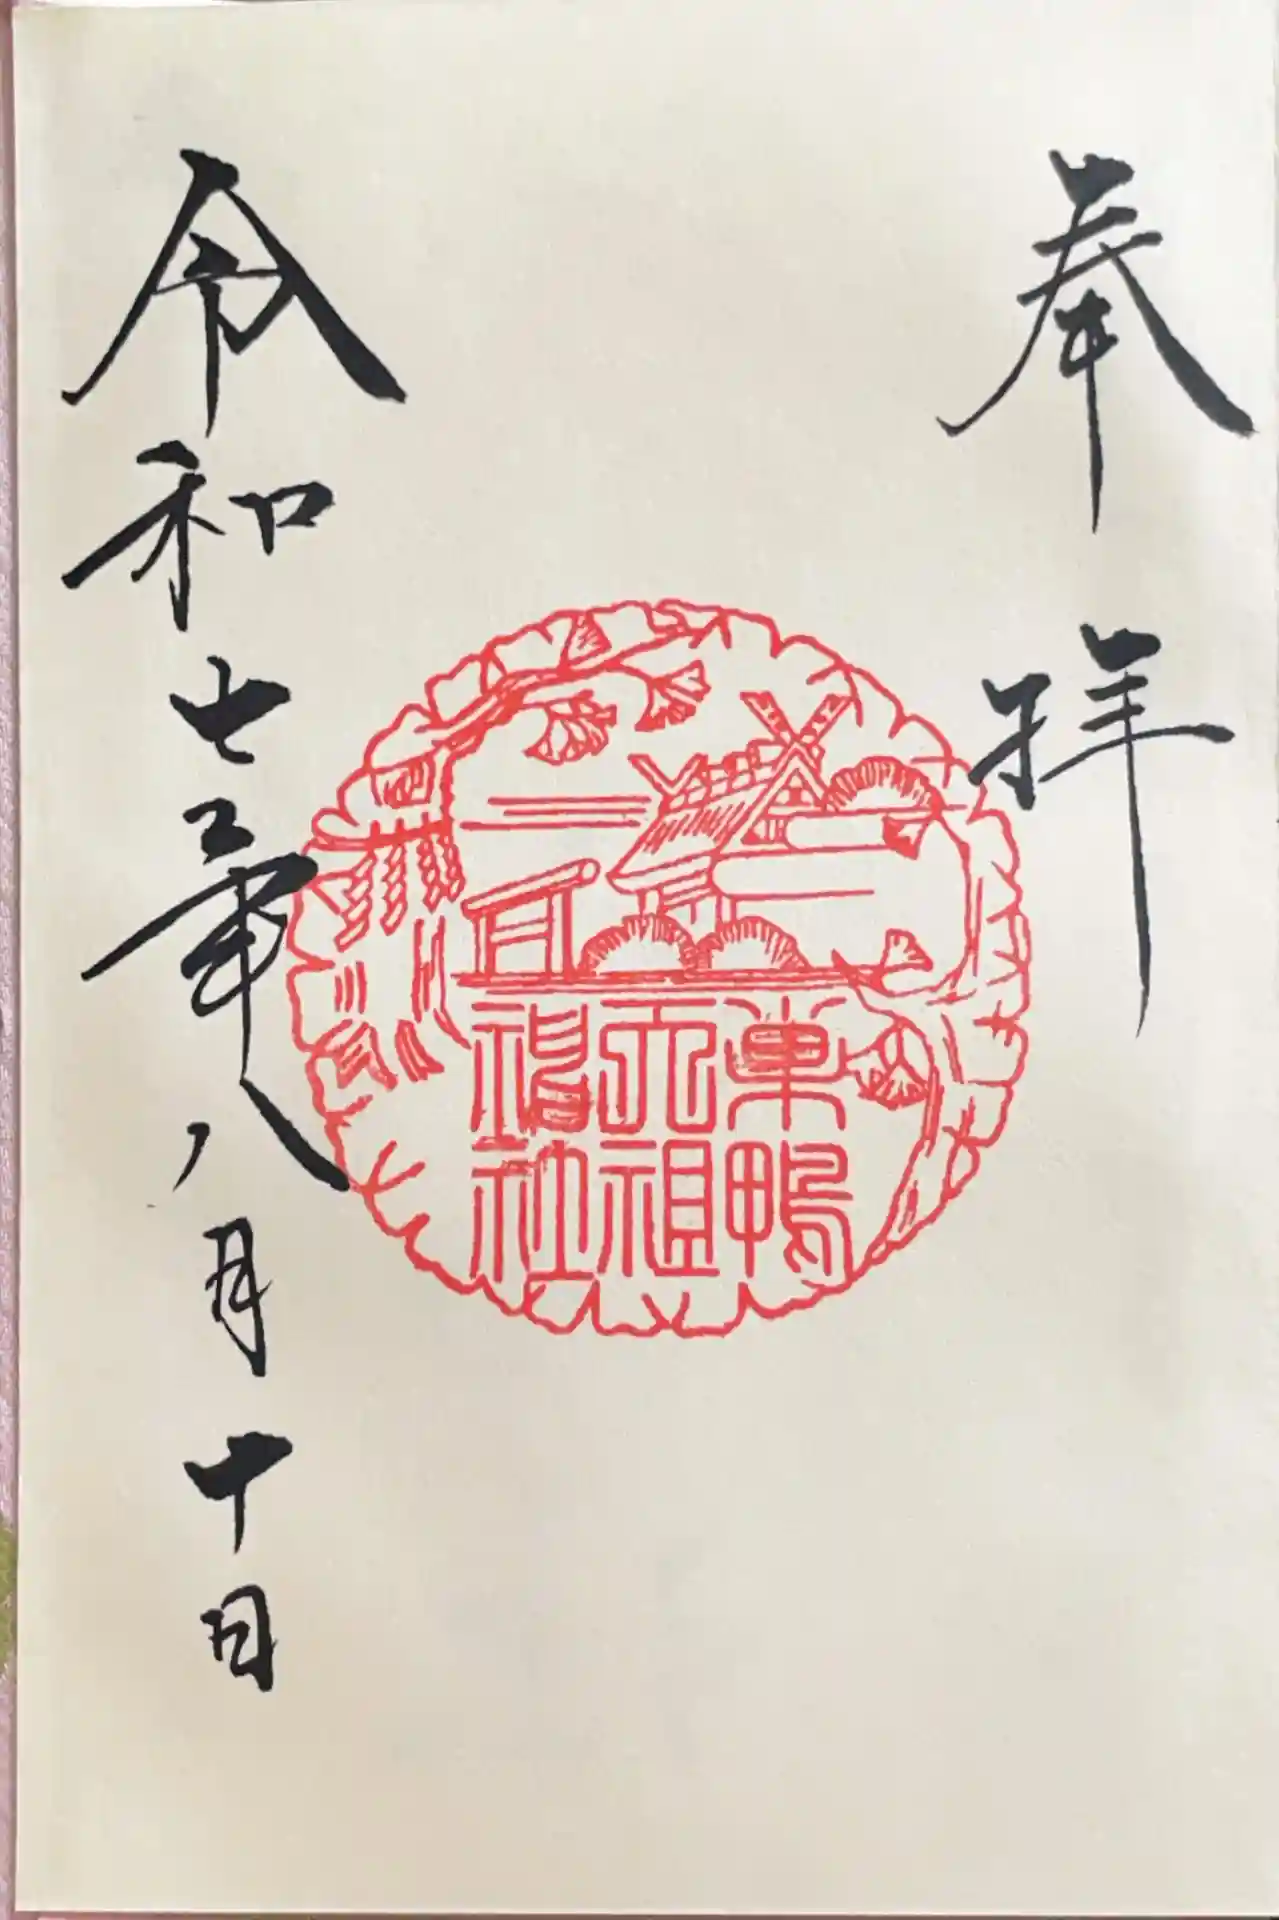 奉拜
巣鴨
天祖
神社
令和七年八月十日